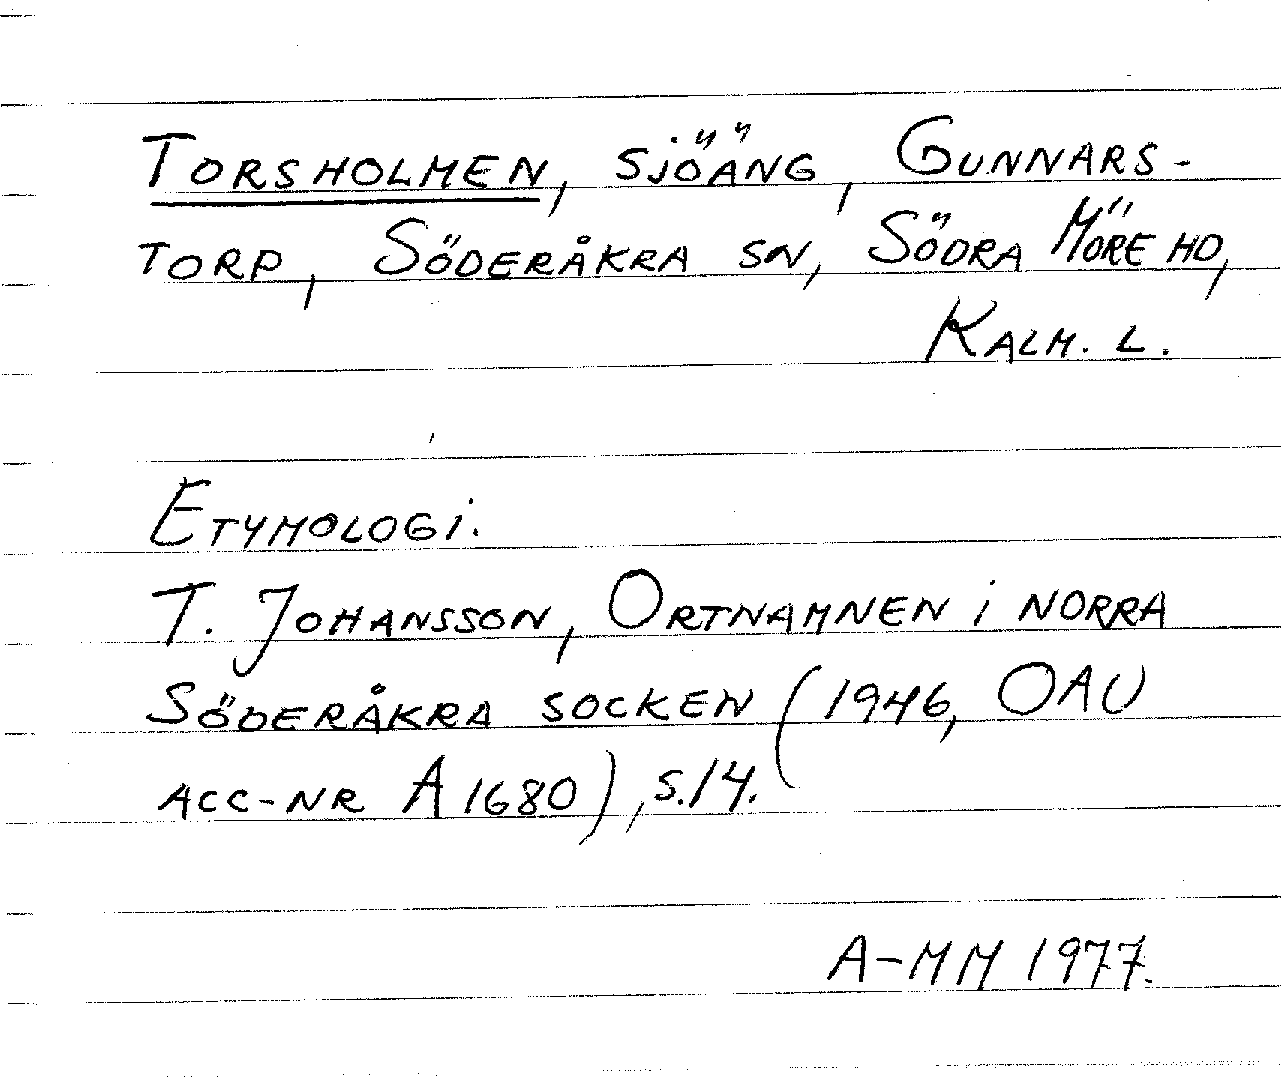 TORSHOLMEN, SJÖÄNG, GUNNARS-
TORP, SÖDERÅKRA SN, SÖDRA MÖRE HD,
KALM. L.
ETYMOLOGI.
T. JOHANSSON, ORTNAMNEN i NORRA
SÖDERÅKRA SOCKEN (1946, OAU
ACC-NR A1680), S.14.
A-MM 1977.